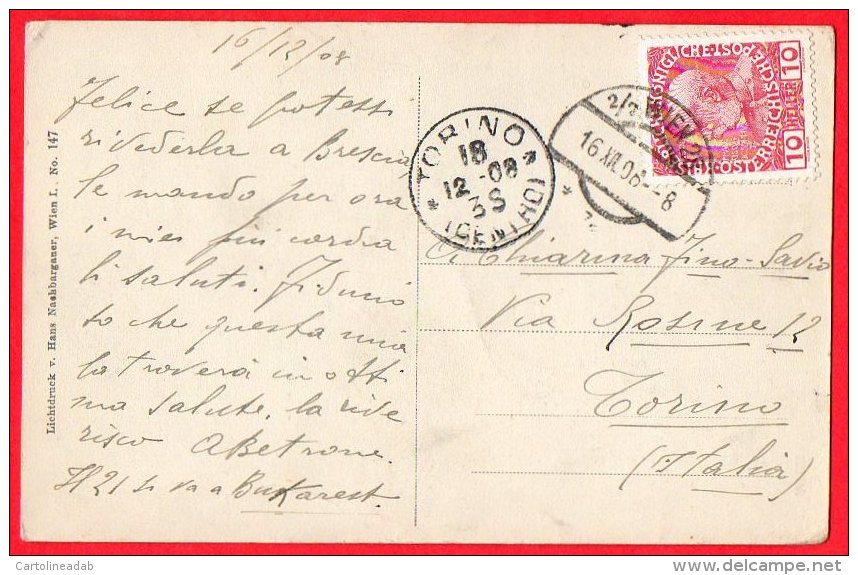 16/12/08
Felice se potessi
rivederla a Brescia,
le mando per ora
i miei più cordia
li saluti. Fiducio
so che questa mia
la troverà in otti
ma salute, la rive
risco ABetrone.
Il 21 si va a Bukarest.
Lichtdruck v. Hans Nachbargauer, Wien I. No. 147
TORINO
18
12-08
3S
(CENTRO)
WIEN
16.XII.08
8
10
HELLER
10
A Chiarina Fino-Savio
Via Rosine 12
Torino
(Italia)
© Cartolineadab
delcampe.net